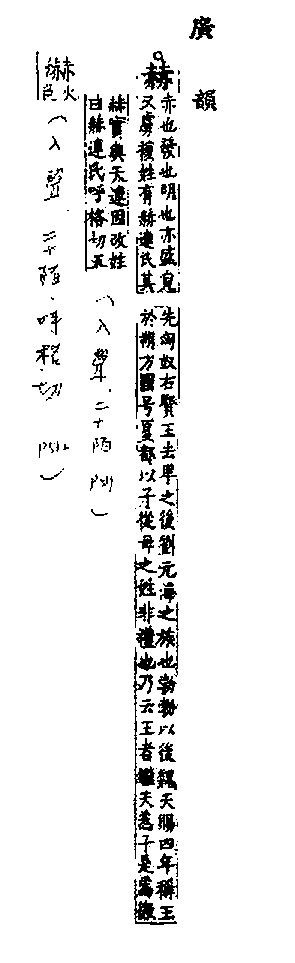 廣韻
赫
赤也發也明也亦盛皃
又虜複姓有赫連氏其
先匈奴右賢王去卑之後劉元海之族也勃勃以後魏天賜四年稱王
於朔方國号夏都以子從母之姓非禮也乃云王者繼天為子是為徽
赫實與天連因改姓
曰赫連氏呼格切五
(入聲.二十陌
(入聲.二十陌.呼格切